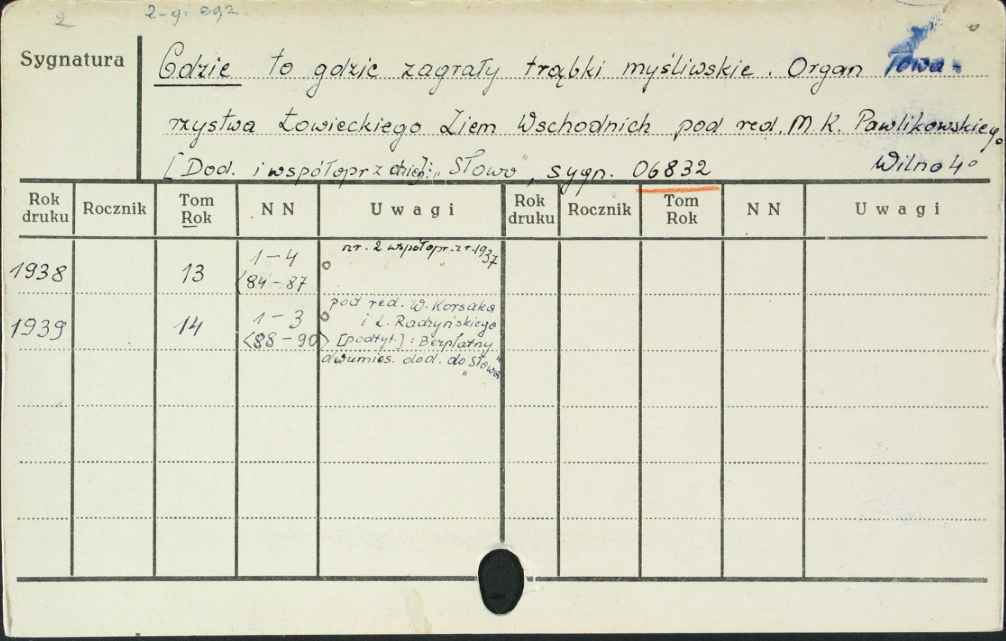 2 2-gi egz.
Sygnatura
Gdzie to gdzie zagrały trąbki myśliwskie. Organ Towa-
rzystwa Łowieckiego Ziem Wschodnich pod red. M. K. Pawlikowskiego
[Dod. i współopr z dzieł: „Słowo„ sygn. 06832 Wilno 4°
Rok druku Rocznik Tom Rok NN Uwagi Rok druku Rocznik Tom Rok NN Uwagi
1938 13 1-4 nr. 2 współopr. z r. 1937
<84-87
1939 14 1-3 pod red. W. Korsaka
i L. Radzyńskiego
<88-90> [podtyt.]: Bezpłatny
dwumies. dod. do „Słowa"